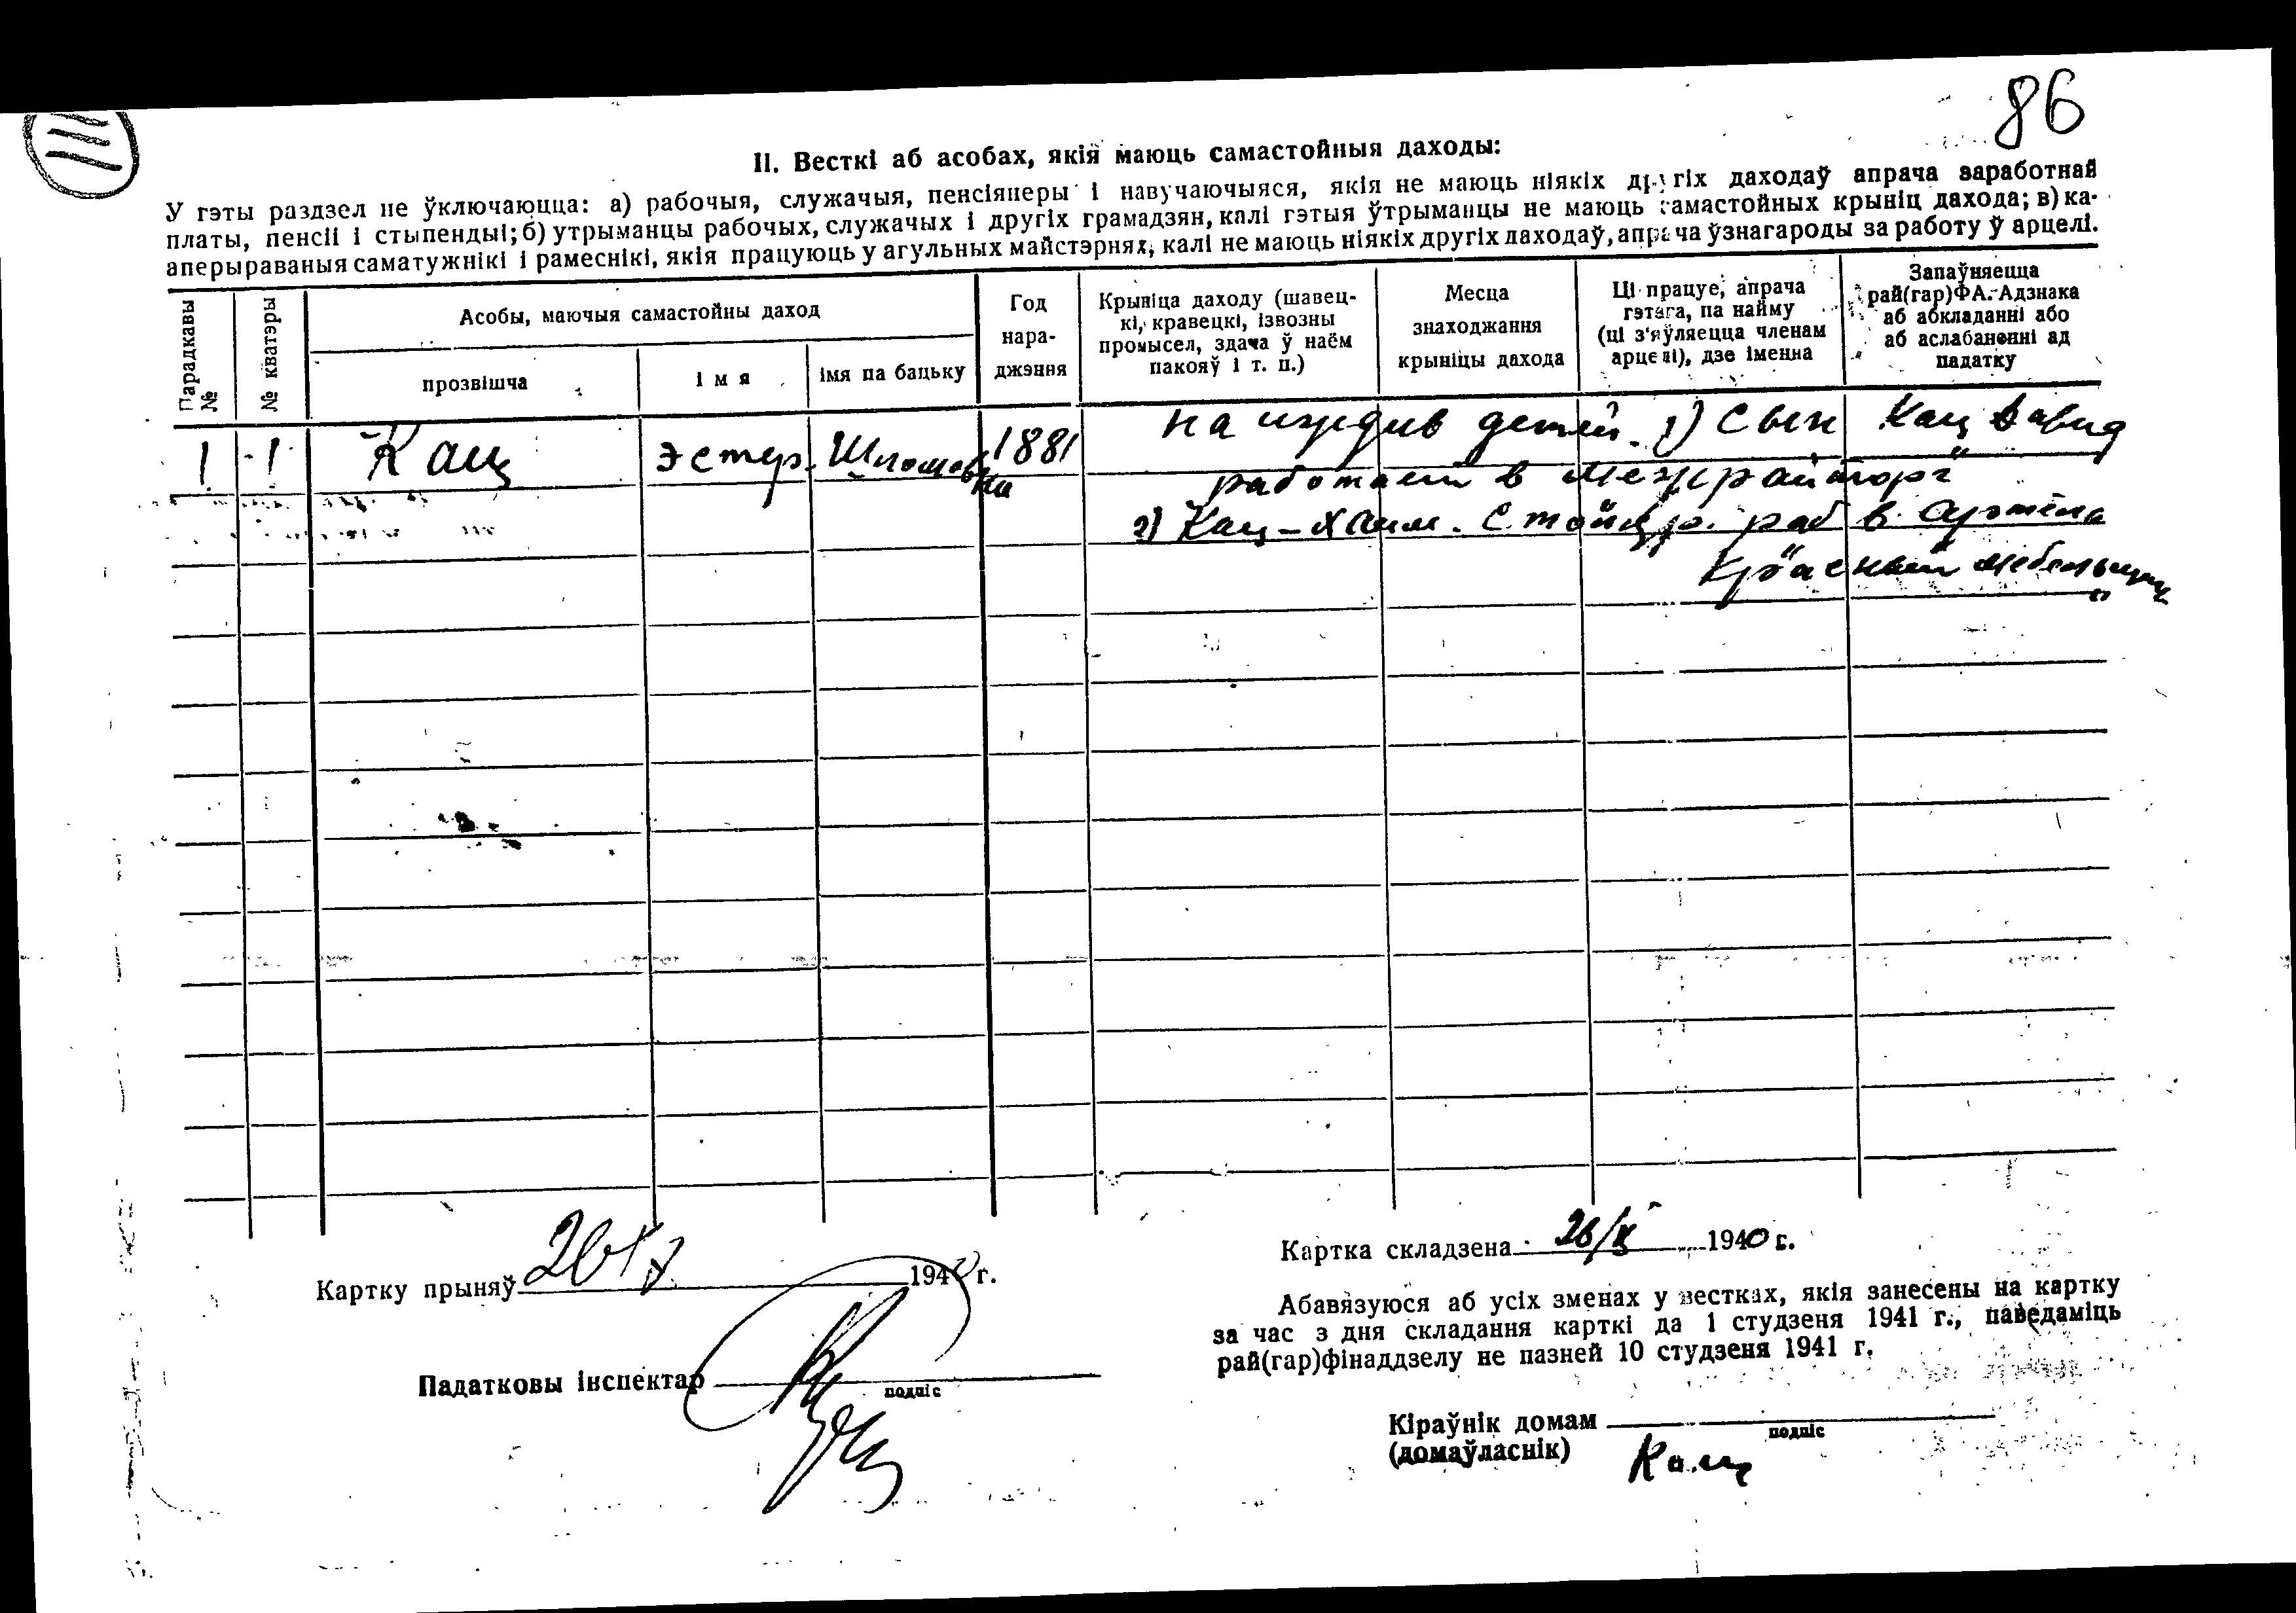 86
II. Весткі аб асобах, якія маюць самастойныя даходы:
У гэты раздзел не ўключаюцца: а) рабочыя, служачыя, пенсіянеры і навучаючыяся, якія не маюць ніякіх другіх даходаў апрача заработнай
платы, пенсіі і стыпендыі; б) утрыманцы рабочых, служачых і другіх грамадзян, калі гэтыя ўтрыманцы не маюць самастойных крыніц дахода; в) ка-
аперыраваныя саматужнікі і рамеснікі, якія працуюць у агульных майстэрнях, калі не маюць ніякіх другіх даходаў, апрача ўзнагароды за работу ў арцелі.
Парадкавы №
№ кватэры
Асобы, маючыя самастойны даход
прозвішча
імя
імя па бацьку
Год
нара-
джэння
Крыніца даходу (шавец-
кі, кравецкі, ізвозны
промысел, здача ў наём
пакояў і т. п.)
Месца
знаходжання
крыніцы дахода
Ці працуе, апрача
гэтага, па найму
(ці з'яўляецца членам
арцелі), дзе іменна
Запаўняецца
рай(гар)ФА. Адзнака
аб абкладанні або
аб аслабаненні ад
падатку
1 1 Кац Эстер Шломовна 1881 на иждив детей. 1) Сын Кац Давид
работает в Межрайторг"
2) Кац-Хаим. раб в Артели
"Красный мебельщик"
Картку прыняў 194 г.
Падатковы інспектар
подпіс
Картка складзена 26/X 1940 г.
Абавязуюся аб усіх зменах у вестках, якія занесены на картку
за час з дня складання карткі да 1 студзеня 1941 г., паведаміць
рай(гар)фінаддзелу не пазней 10 студзеня 1941 г.
Кіраўнік домам
подпіс
(домаўласнік) Кац